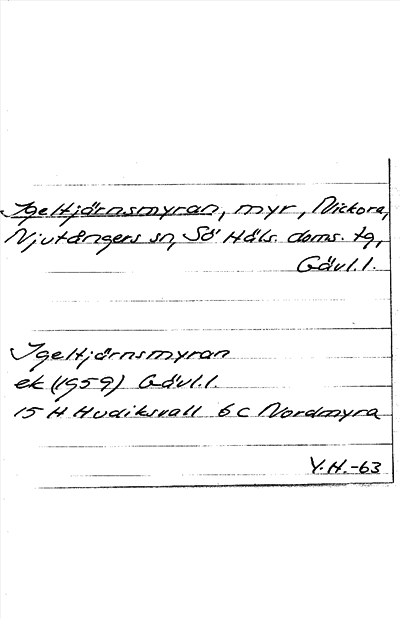 Igeltjärnsmyran, myr, Nickora,
Njutångers sn, Sö Häls. doms. tg,
Gävl.l.
Igeltjärnsmyran
ek (1959) Gävl.l.
15 H Hudiksvall 6 c Nordmyra
Y.H.-63